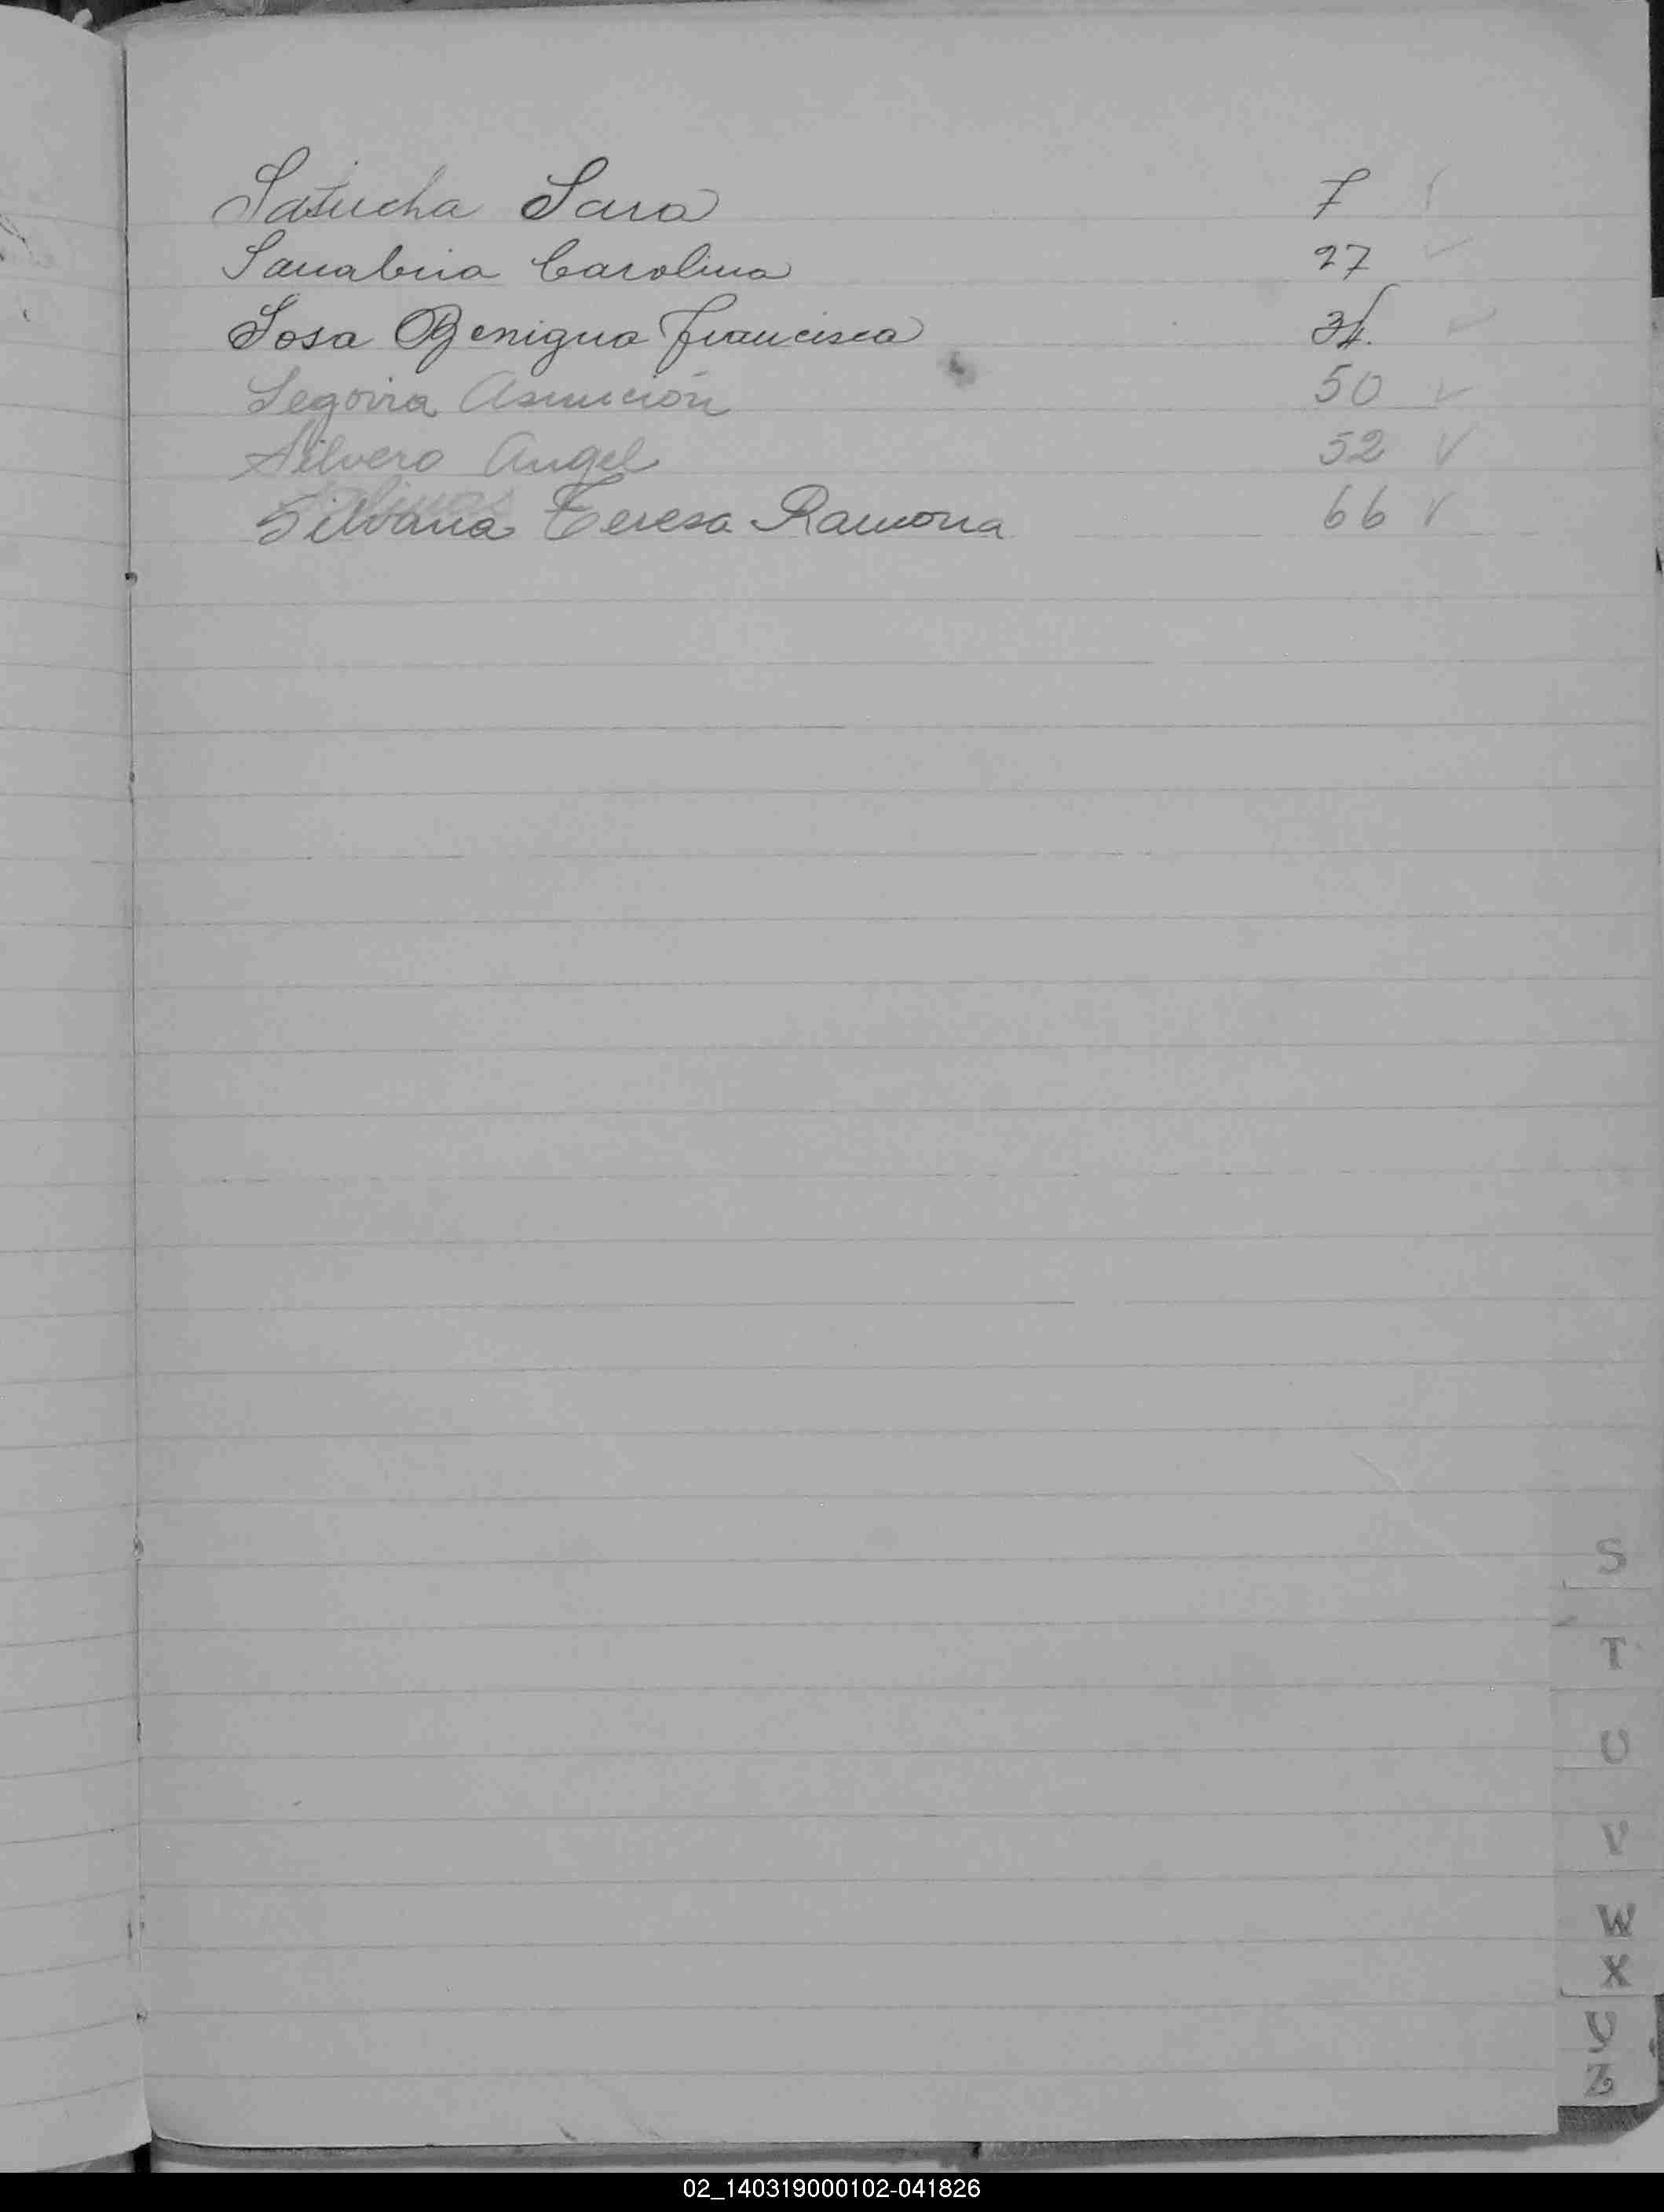 Satucha Sara 7
Sanabria Carolina 27
Sosa Benigna Francisca 34.
Segovia Asunción 50
Silvero Angel 52
Silvana Teresa Ramona 66
S
T
U
V
W
X
Y
Z
02_140319000102-041826